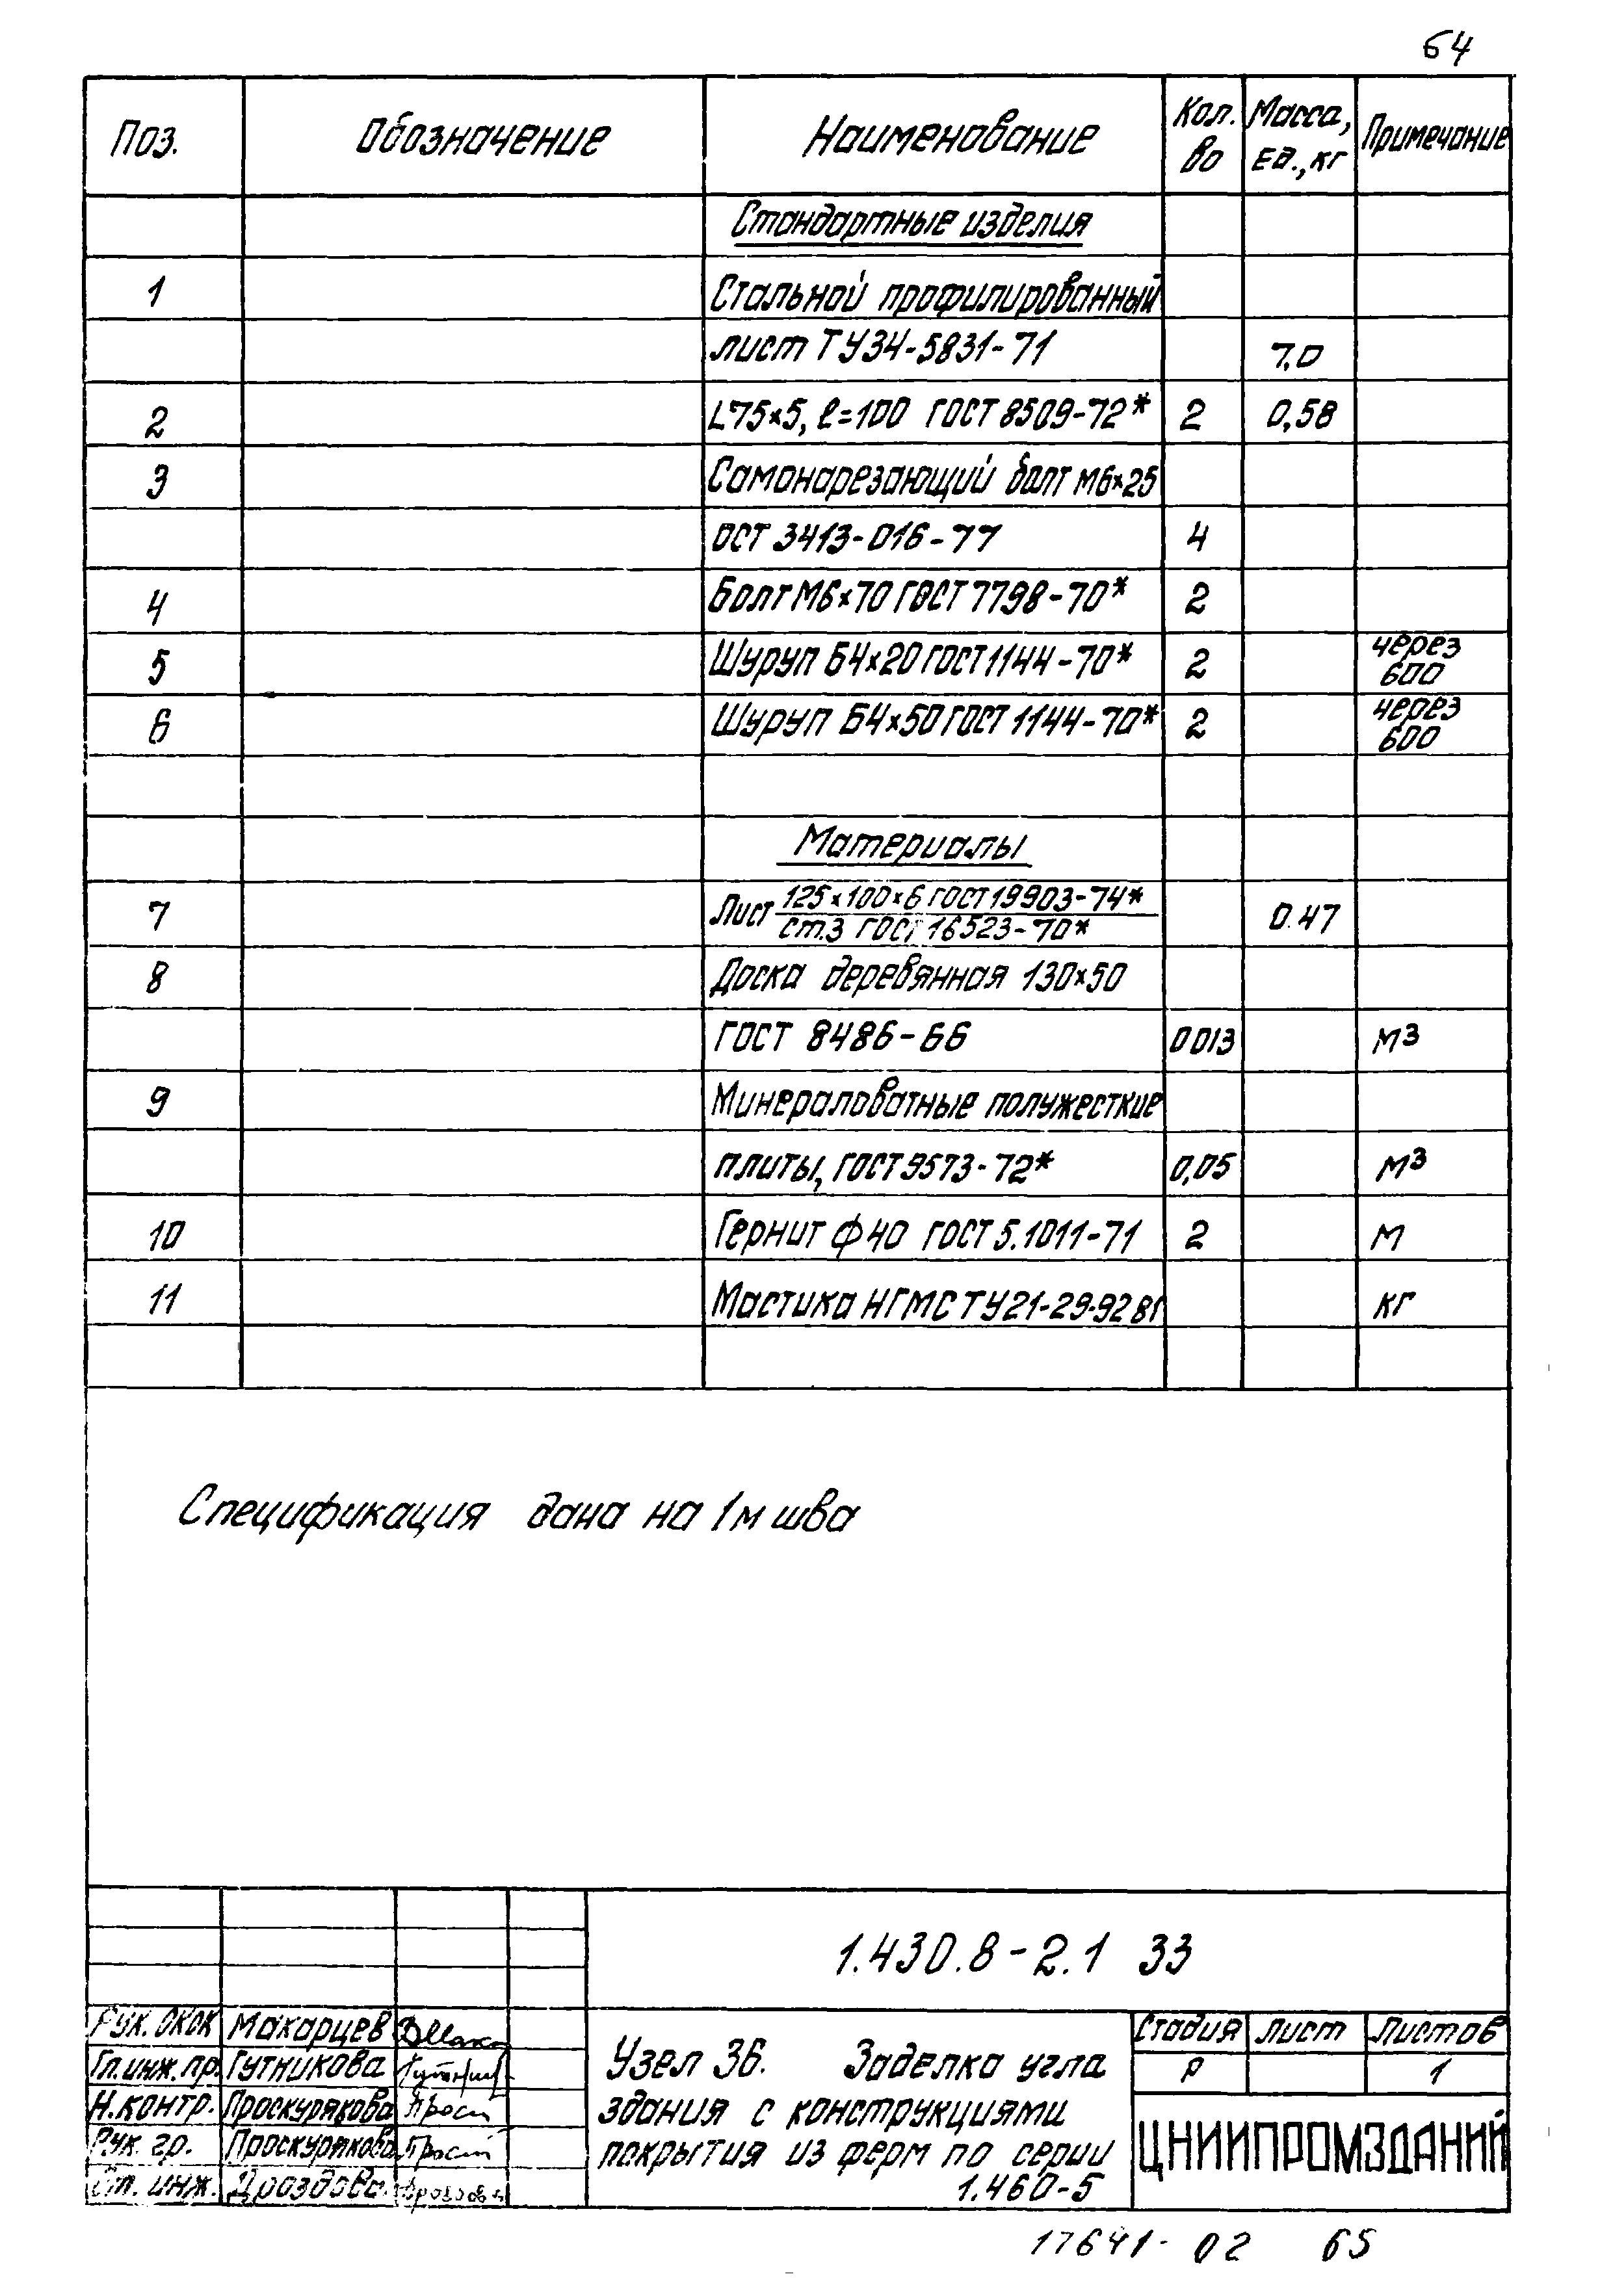 64
Поз. Обозначение Наименование Кол. во Масса, Ед., кг Примечание
Стандартные изделия
1 Стальной профилированный
лист ТУ34-5831-71 7,0
2 L75×5, ℓ=100 ГОСТ 8509-72* 2 0,58
3 Самонарезающий болт М6×25
ОСТ 3413-016-77 4
4 Болт М6×70 ГОСТ 7798-70* 2
5 Шуруп Б4×20 ГОСТ 1144-70* 2 через 600
6 Шуруп Б4×50 ГОСТ 1144-70* 2 через 600
Материалы
7 Лист 125×100×6 ГОСТ 19903-74* 0.47
ст.3 ГОСТ 16523-70*
8 Доска деревянная 130×50
ГОСТ 8486-66 0 013 м³
9 Минераловатные полужесткие
плиты, ГОСТ 9573-72* 0,05 м³
10 Гернит ф 40 ГОСТ 5.1011-71 2 м
11 Мастика НГМС ТУ21-29-92 81 кг
Спецификация дана на 1 м шва
1.430.8-2.1 33
Рук. ОКОК Макарцев
Гл. инж. пр. Гутникова
Н. контр. Проскурякова
Рук. гр. Проскурякова
Ст. инж. Дроздова
Узел 36. Заделка угла
здания с конструкциями
покрытия из ферм по серии
1.460-5
Стадия Лист Листов
Р 1
ЦНИИПРОМЗДАНИЙ
17641-02 65